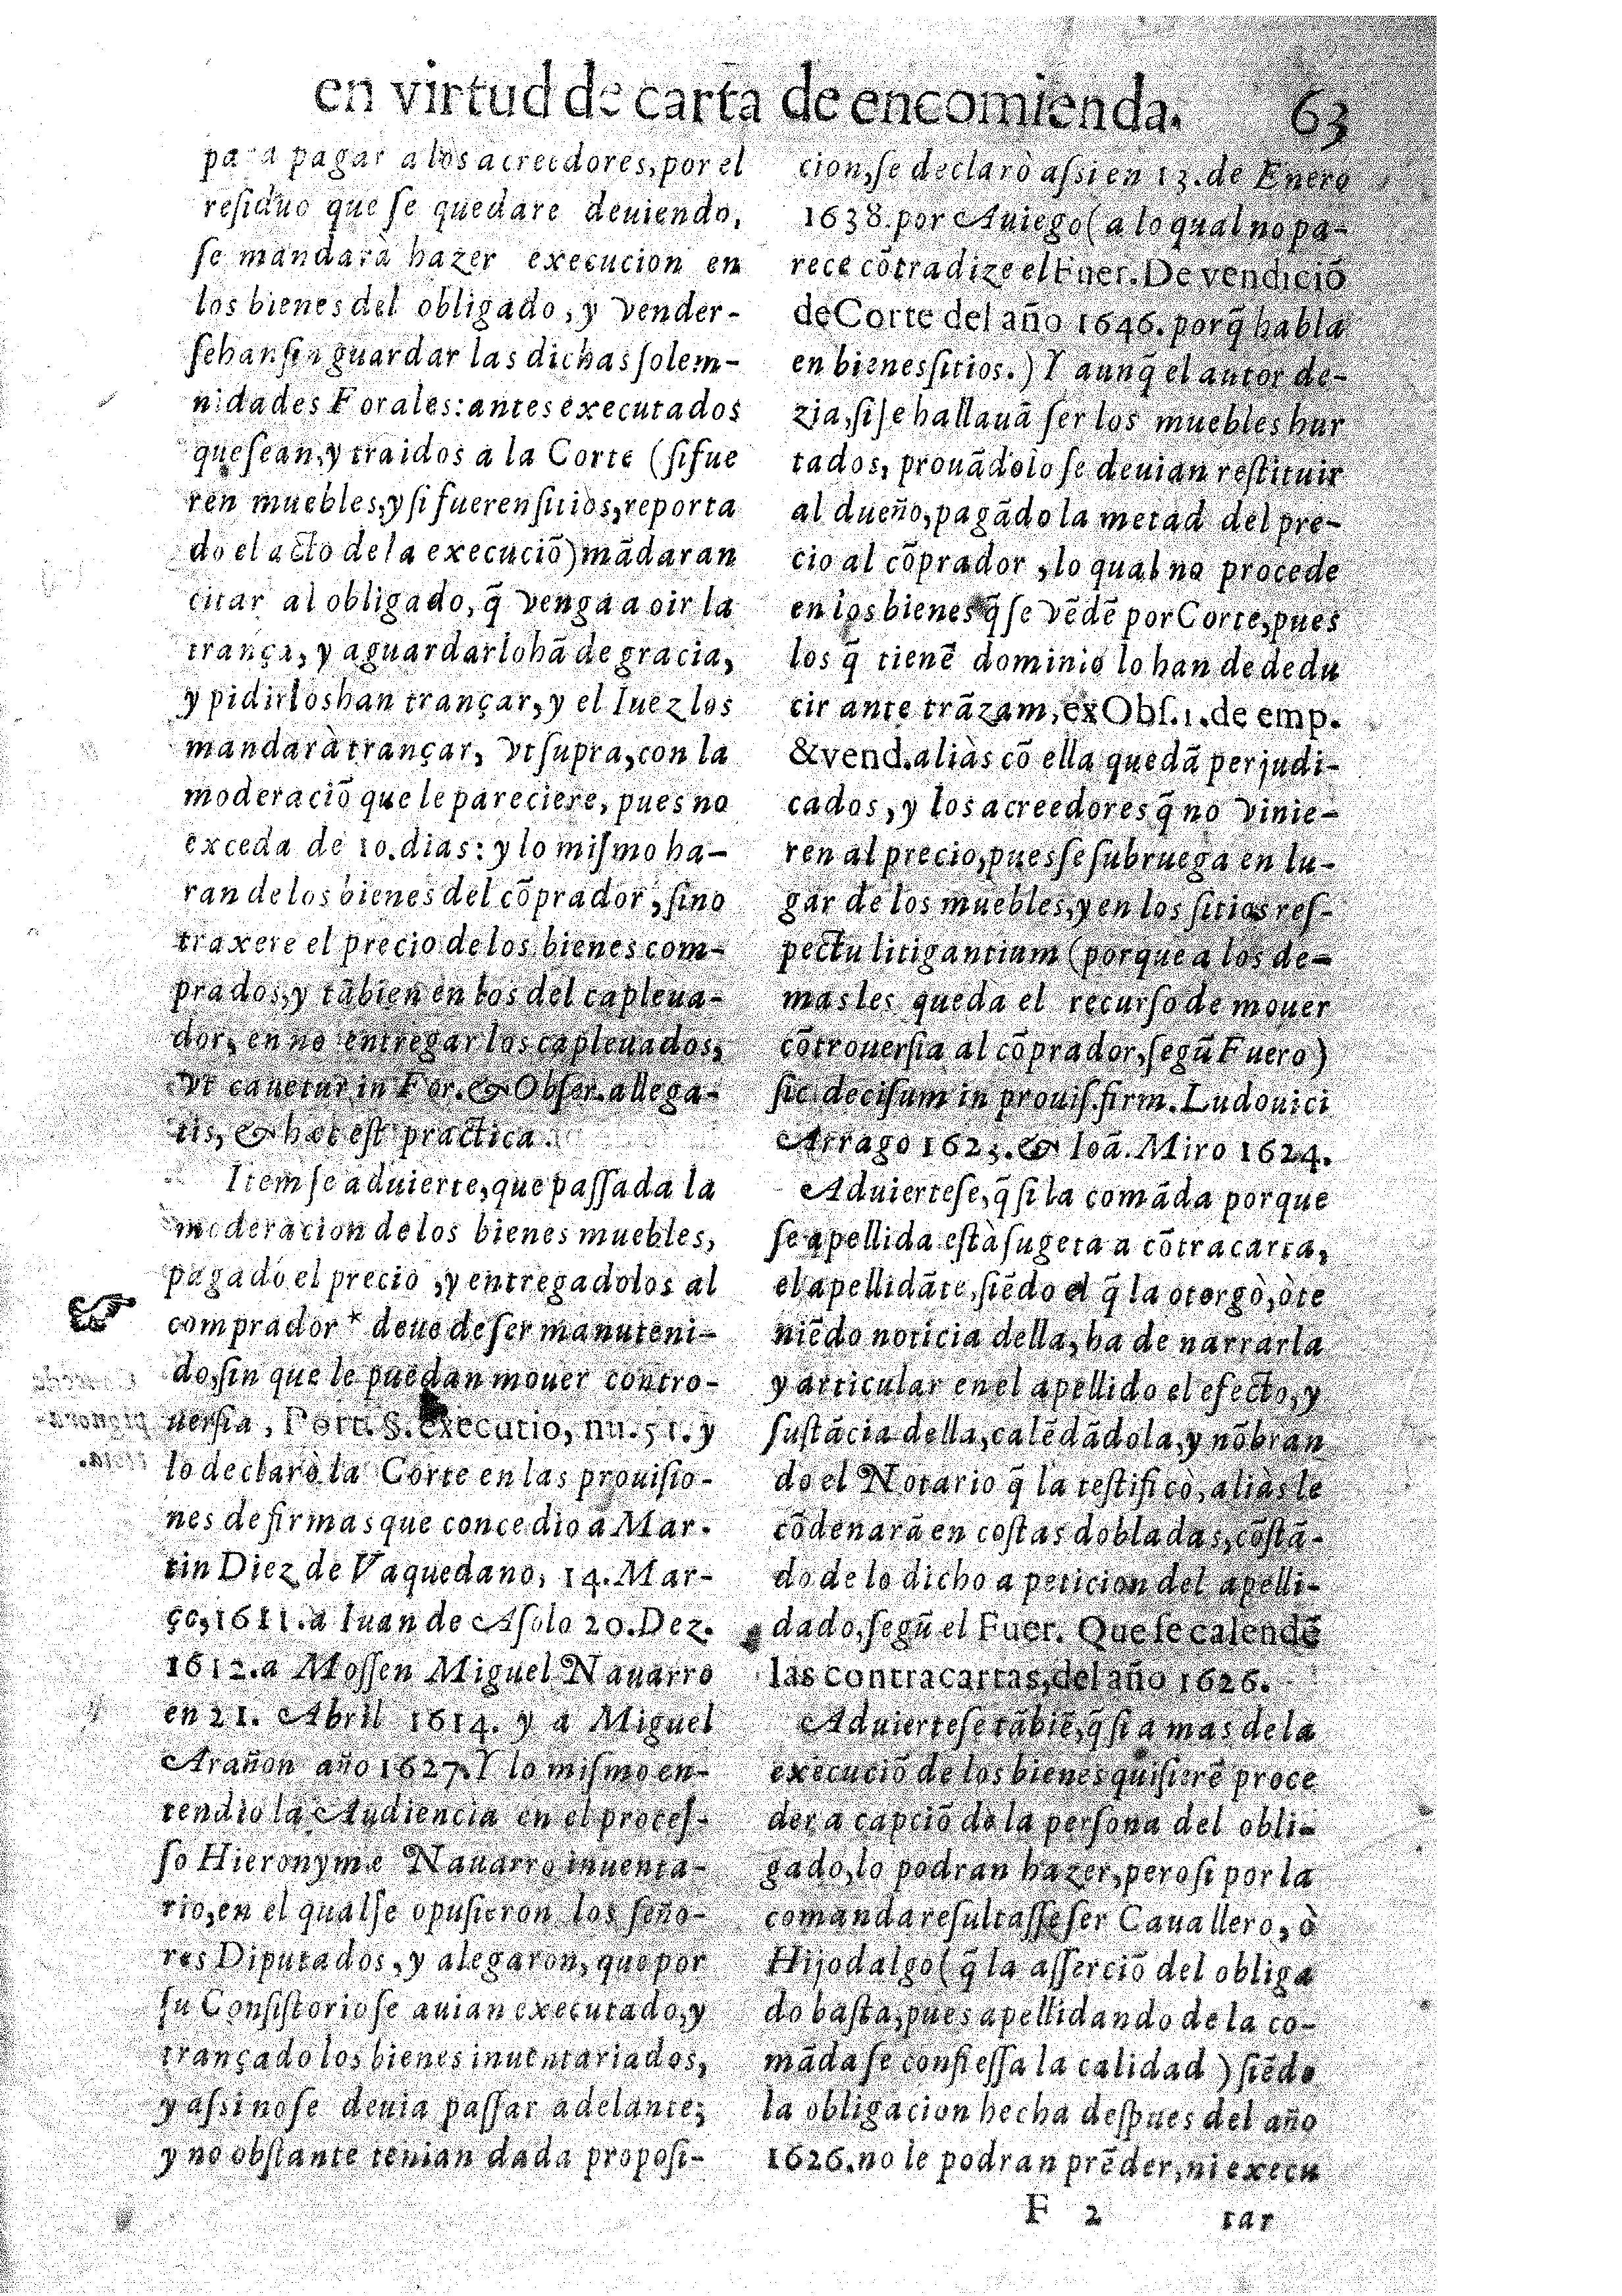 en virtud de carta de encomienda. 63
para pagar a los acreedores, por el
residuo que se quedare deuiendo,
se mandarà hazer execucion en
los bienes del obligado, y vender-
sehan sin guardar las dichas solem-
nidades Forales: antes executados
que sean, y traidos a la Corte (si fue
ren muebles, y si fueren sitios, reporta
do el acto de la execuciõ) mãdaran
citar al obligado, q̃ venga a oir la
trança, y aguardarlohã de gracia,
y pidirloshan trançar, y el Iuez los
mandarà trançar, vt supra, con la
moderaciõ que le pareciere, pues no
exceda de 10. dias: y lo mismo ha-
ran de los bienes del cõprador, sino
traxere el precio de los bienes com-
prados, y tãbien en los del capleua-
dor, en no entregar los capleuados,
vt cauetur in For. & Obser. allega-
tis, & hæc est practica.
Item se aduierte, que passada la
moderacion de los bienes muebles,
pagado el precio, y entregadolos al
comprador * deue de ser manuteni-
do, sin que le puedan mouer contro-
uersia, Port. §. executio, nu. 51. y
lo declarò la Corte en las prouisio-
nes de firmas que concedio a Mar-
tin Diez de Vaquedano, 14. Mar-
ço, 1611. a Iuan de Asolo 20. Dez.
1612. a Mossen Miguel Nauarro
en 21. Abril 1614. y a Miguel
Arañon año 1627. Y lo mismo en-
tendio la Audiencia en el proces-
so Hieronyme Nauarro inuenta-
rio, en el qual se opusieron los seño-
res Diputados, y alegaron, que por
su Consistorio se auian executado, y
trançado los bienes inuentariados,
y assi no se deuia passar adelante;
y no obstante tenian dada proposi-
cion, se declarò assi en 13. de Enero
1638. por Auiego (a lo qual no pa-
rece cõtradize el Fuer. De vendiciõ
de Corte del año 1646. porq̃ habla
en bienes sitios.) Y aunq̃ el autor de-
zia, si se hallauã ser los muebles hur
tados, prouãdolo se deuian restituir
al dueño, pagãdo la metad del pre-
cio al cõprador, lo qual no procede
en los bienes q̃ se vẽdẽ por Corte, pues
los q̃ tienẽ dominio lo han de dedu
cir ante trãzam, ex Obs. 1. de emp.
& vend. aliàs cõ ella quedã perjudi-
cados, y los acreedores q̃ no vinie-
ren al precio, pues se subruega en lu-
gar de los muebles, y en los sitios res-
pectu litigantium (porque a los de-
mas les queda el recurso de mouer
cõtrouersia al cõprador, segũ Fuero)
sic decisum in prouis. firm. Ludouici
Arrago 1623. & Ioã. Miro 1624.
Aduiertese, q̃ si la comãda porque
se apellida està sugeta a cõtracarta,
el apellidãte, siẽdo el q̃ la otorgò, ò te
niẽdo noticia della, ha de narrarla
y articular en el apellido el efecto, y
sustãcia della, calẽdãdola, y nõbran
do el Notario q̃ la testificò, aliàs le
cõdenarã en costas dobladas, cõstã-
do de lo dicho a peticion del apelli-
dado, segũ el Fuer. Que se calendẽ
las contracartas, del año 1626.
Aduiertese tãbiẽ, q̃ si a mas de la
execuciõ de los bienes quisierẽ proce
der a capciõ de la persona del obli-
gado, lo podran hazer, pero si por la
comanda resultasse ser Cauallero, ò
Hijodalgo (q̃ la asserciõ del obliga
do basta, pues apellidando de la co-
mãda se confiessa la calidad) siẽdo
la obligacion hecha despues del año
1626. no le podran prẽder, ni execu
F 2 tar